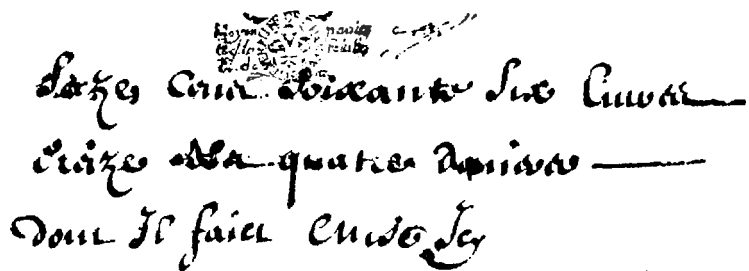 Saize cens soixante six livres
traize solz quatre deniers
Dont Il faict Mise Icy